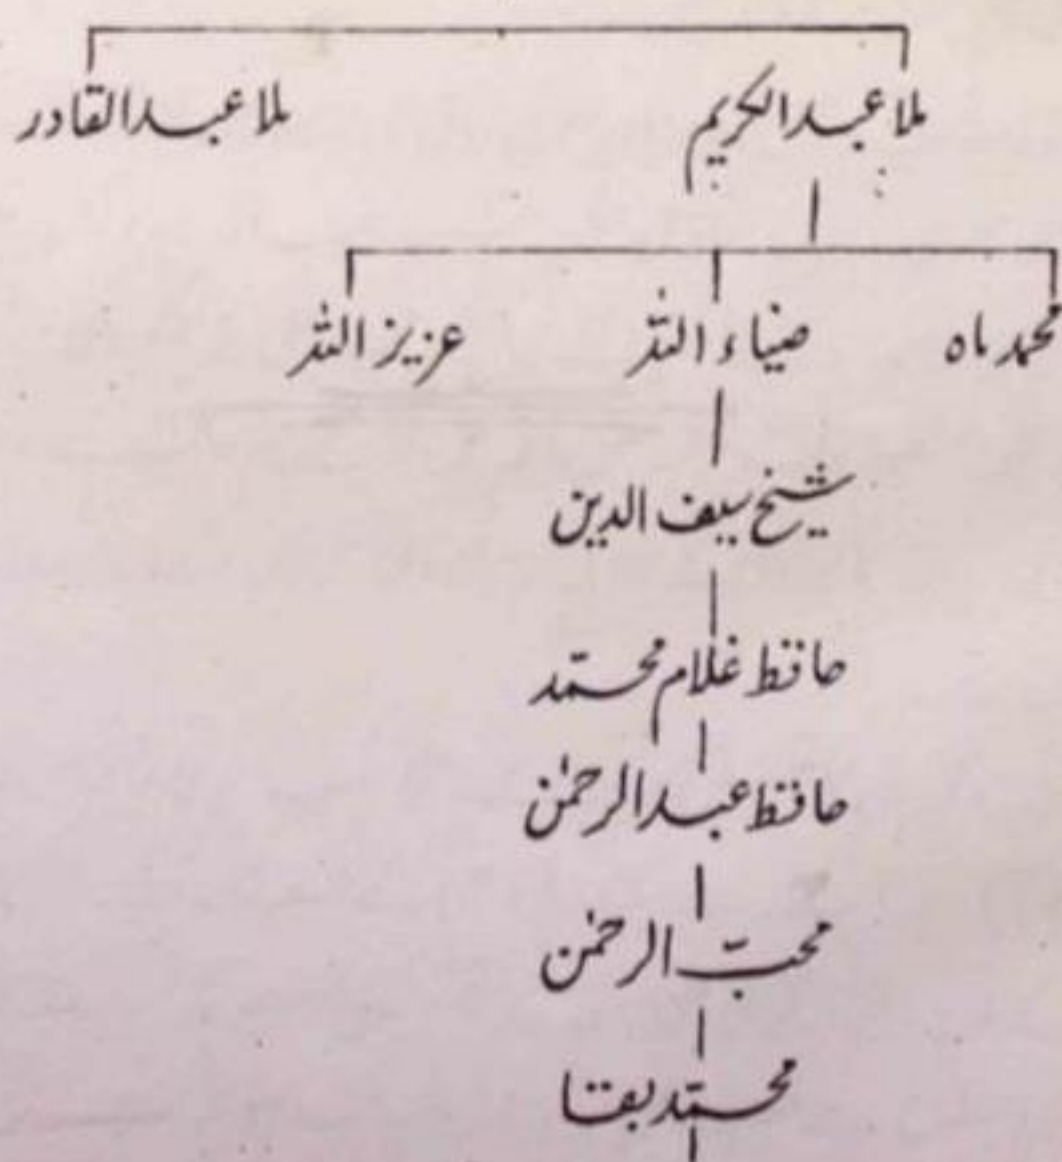 ملا عبدالکریم ملا عبدالقادر
محمد ماہ ضیاء اللہ عزیز اللہ
شیخ سیف الدین
حافظ غلام محمّد
حافظ عبدالرحمٰن
محبّ الرحمٰن
محمّد بقا